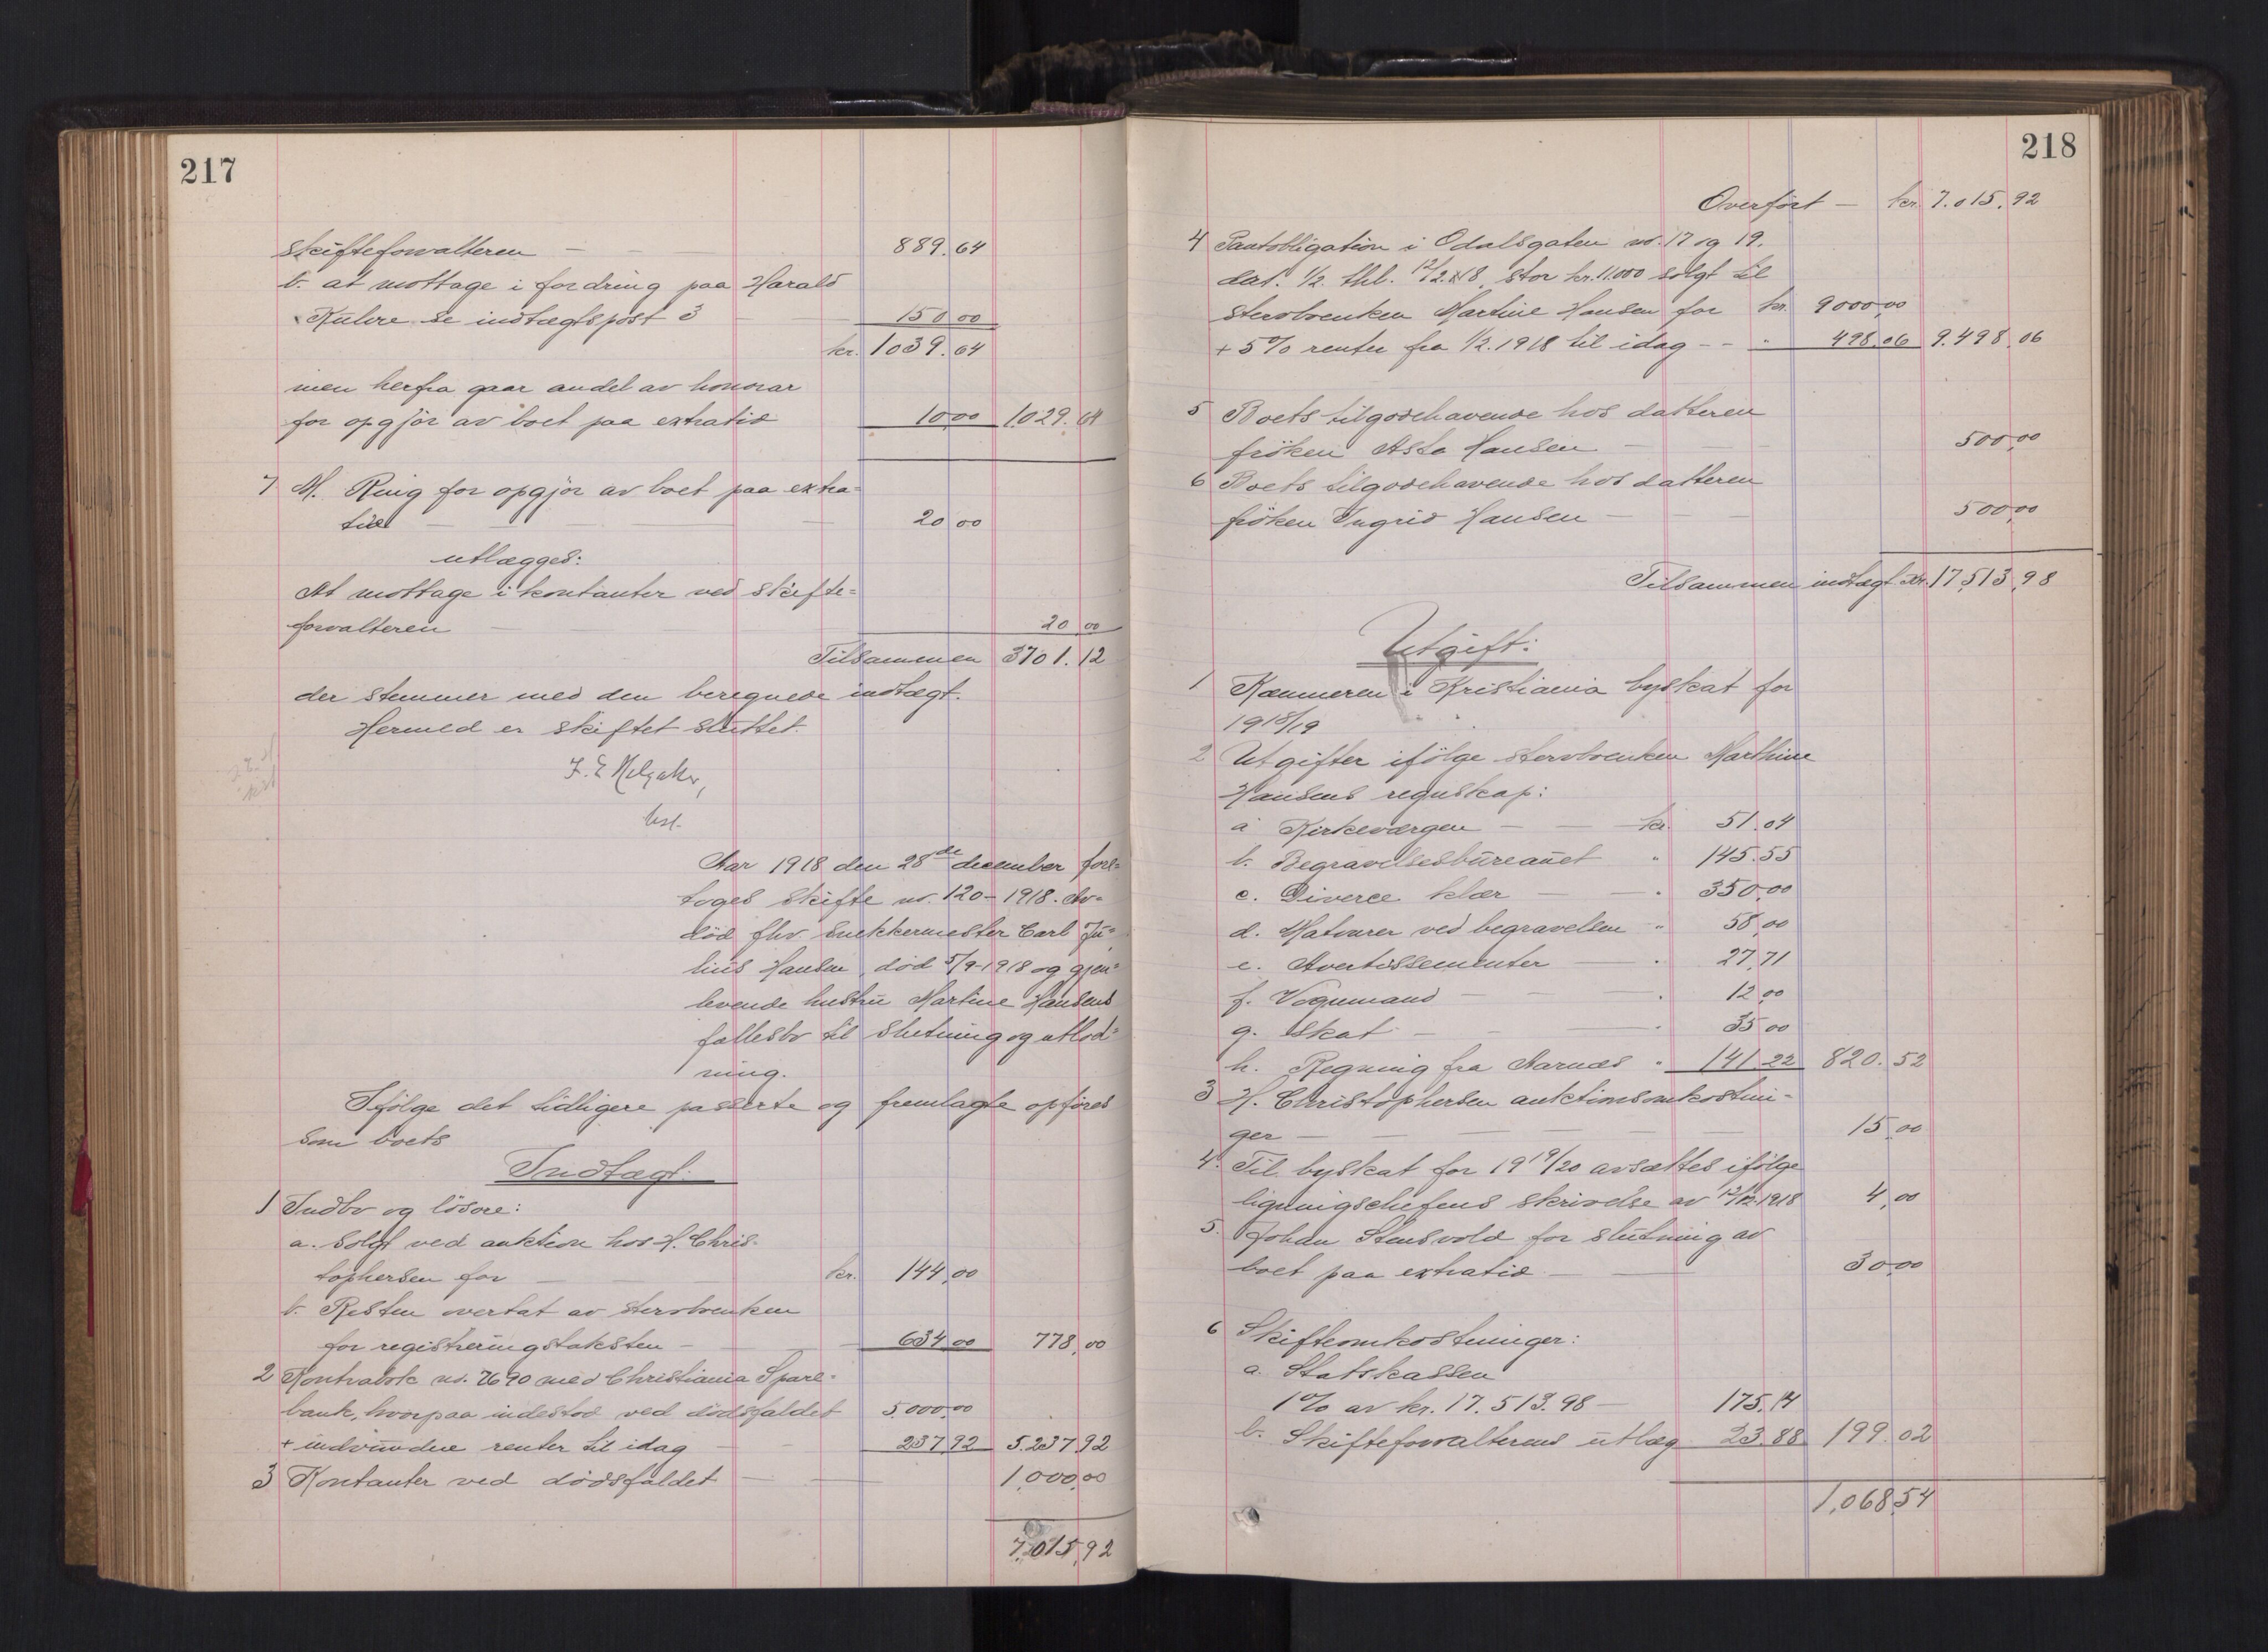 217
skifteforvalteren — — 889.64
b. at mottage i fordring paa Harald
se indtægtspost 3 — 150 00
kr. 1039.64
men herfra gaar andel av honorar
for opgjör av boet paa extratid 10 00 1029.64
7 M. Ring for opgjör av boet paa extra=
tid — — — — 20 00
utlægges:
At mottage i kontanter ved skifte=
forvalteren — 20 00
Tilsammen 3701.12
der stemmer med den beregnede indtægt.
Hermed er skiftet sluttet.
Aar 1918 den 28de december fore=
toges skifte no. 120-1918. Av=
död fhv. snekkermester Carl Ju=
lius Hansen, död 5/9-1918 og gjen=
levende hustru Martine Hansens
fællesbo til slutning og utlod=
ning.
Ifölge det tidligere passerte og fremlagte opföres
som boets
Indtægt:
1 Indbo og lösöre:
a. Solgt ved auktion hos H. Chris-
tophersen for — — kr. 144,00
b. Resten overtat av stervboenken
for registreringstaksten — 634 00 778,00
2 Kontrabok no. 7690 med Christiania Spare=
bank, hvorpaa indestod ved dödsfaldet 5.000,00
+ indvundne renter til idag — 237 92 5.237 92
3 Kontanter ved dödsfaldet — — 1,000,00
7,015,92
218
Overfört — kr. 7.015.92
4 Pantobligation i Odalsgaten no. 17 og 19.
dat. 1/2. thl. 12/2.18, stor kr. 11.000 solgt til
stervboenken Martine Hansen for kr. 9000,00
+ 5% renter fra 1/2.1918 til idag - - " 498.06 9.498.06
5 Boets tilgodehavende hos datteren
fröken Asta Hansen — — 500,00
6 Boets tilgodehavende hos datteren
fröken Ingrid Hansen — — 500,00
Tilsammen indtægt kr. 17,513,98
Utgift:
1 Kæmneren i Kristiania byskat for
1918/19 " "
2 Utgifter ifölge stervboenken Marthine
Hansens regnskap:
a Kirkeværgen — — kr. 51.04
b. Begravelsesbureauet " 145.55
c. Diverce klær — — " 350,00
d. Matvarer ved begravelsen " 58,00
e. Avertissementer — " 27,71
f. Vognmand — — " 12,00
g. Skat — — " 35 00
h. Regning fra Aarnæs " 141 22 820.52
3 H. Christophersen auktionsomkostnin-
ger — — — — — 15,00
4. Til byskat for 1919/20 avsættes ifölge
ligningschefens skrivelse av 12/12.1918 4,00
5. Johan Stensvold for slutning av
boet paa extratid — — 30,00
6 Skifteomkostninger:
a. Statskassen
1% av kr. 17.513.98 — 175.14
b. Skifteforvalterens utlæg 23.88 199.02
1,068,54